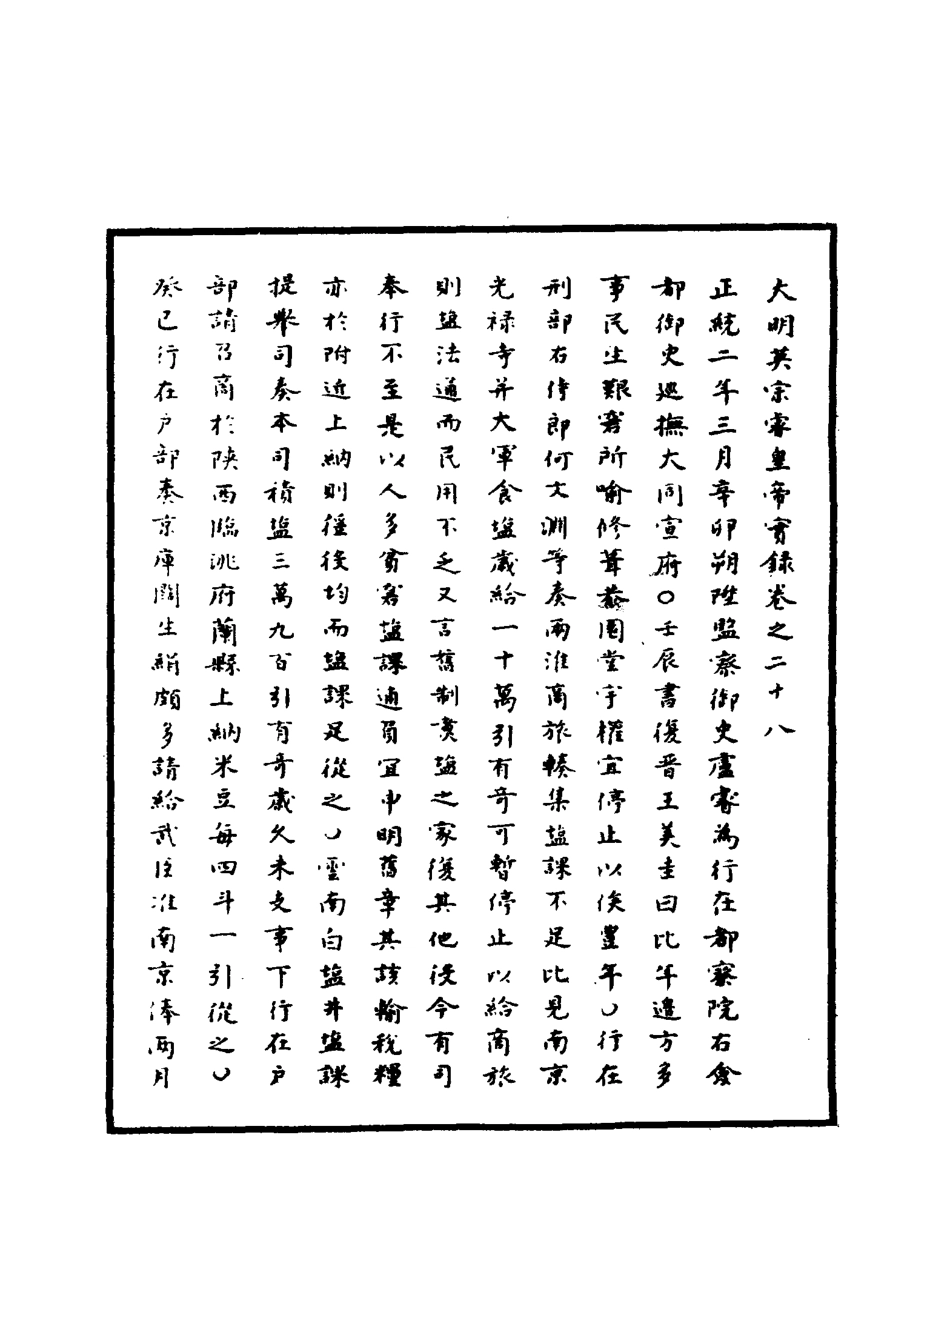 大明英宗睿皇帝實錄卷之二十八
正統二年三月辛卯朔陞監察御史盧睿為行在都察院右僉
都御史廵撫大同宣府○壬辰書復晋王美圭曰比年邊方多
事民生艱窘所喻修葺園堂宇權宜停止以俟豐年○行在
刑部右侍郎何文淵等奏兩淮商旅輳集塩課不足比見南京
光禄寺并大軍食塩歲給一十萬引有奇可暫停止以給商旅
則塩法通而民用不乏又言舊制煑塩之家復其他役今有司
奉行不至是以人多貧窘塩課逋負宜申明舊章其該輸稅糧
亦於附近上納則徭役均而塩課足從之○雲南白塩井塩課
提舉司奏本司積塩三萬九百引有奇歲久未支事下行在户
部請召商於陝西臨洮府蘭縣上納米豆每四斗一引從之○
癸巳行在户部奏京庫闊生絹頗多請給武臣准南京俸兩月